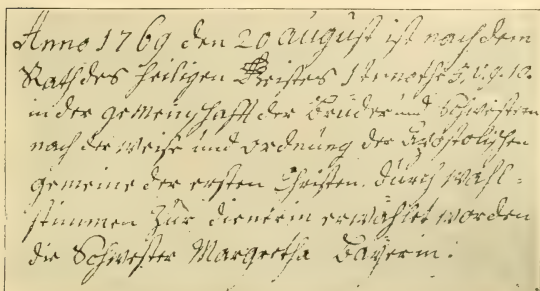 Anno 1769 den 20 august ist nach dem
Rath des heiligen Geistes 1 timothe 5. v. 9. 10.
in der gemeinschafft der Brüder und Schwestern
nach der weise und ordnung der Apostolischen
gemeine der ersten Christen. durch wahl-
stimmen zur dienerin erwählet worden
die Schwester Margretha Bayerin.